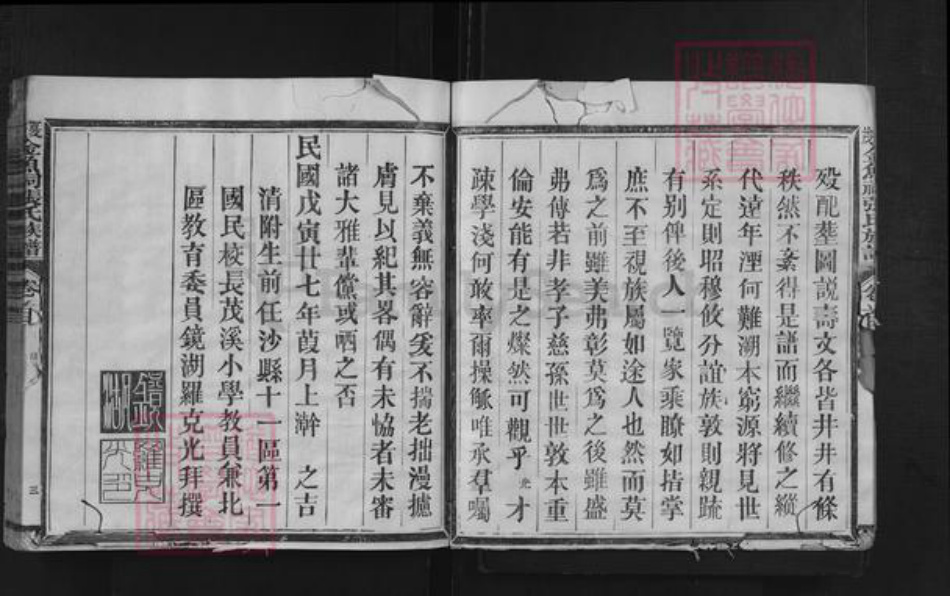 殁配塟圖説壽文各皆井井有條
秩然不紊得是譜而繼續修之縱
代遠年湮何難溯本窮源將見世
系定則昭穆攸分誼族敦則親疏
有别俾後人一覽家乘瞭如指掌
庶不至視族屬如途人也然而莫
爲之前雖美弗彰莫爲之後雖盛
弗傳若非孝子慈孫世世敦本重
倫安能有是之燦然可觀乎光才
疎學淺何敢率爾操觚唯承羣囑
不棄義無容辭爰不揣老拙漫攄
膚見以紀其畧偶有未恊者未審
諸大雅輩儻或哂之否
民國戊寅廿七年葭月上澣 之吉
清附生前任沙縣十一區第一
國民校長茂溪小學教員兼北
區教育委員鏡湖羅克光拜撰
金魚 張氏族譜 卷之首
三
鏡湖
羅克光印